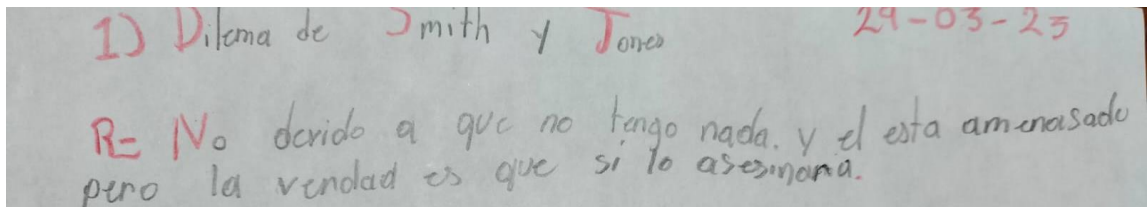 1) Dilema de Smith y Jones 29-03-25
R= No devido a que no tengo nada. y el esta amenasado
pero la verdad es que si lo asesinaria.